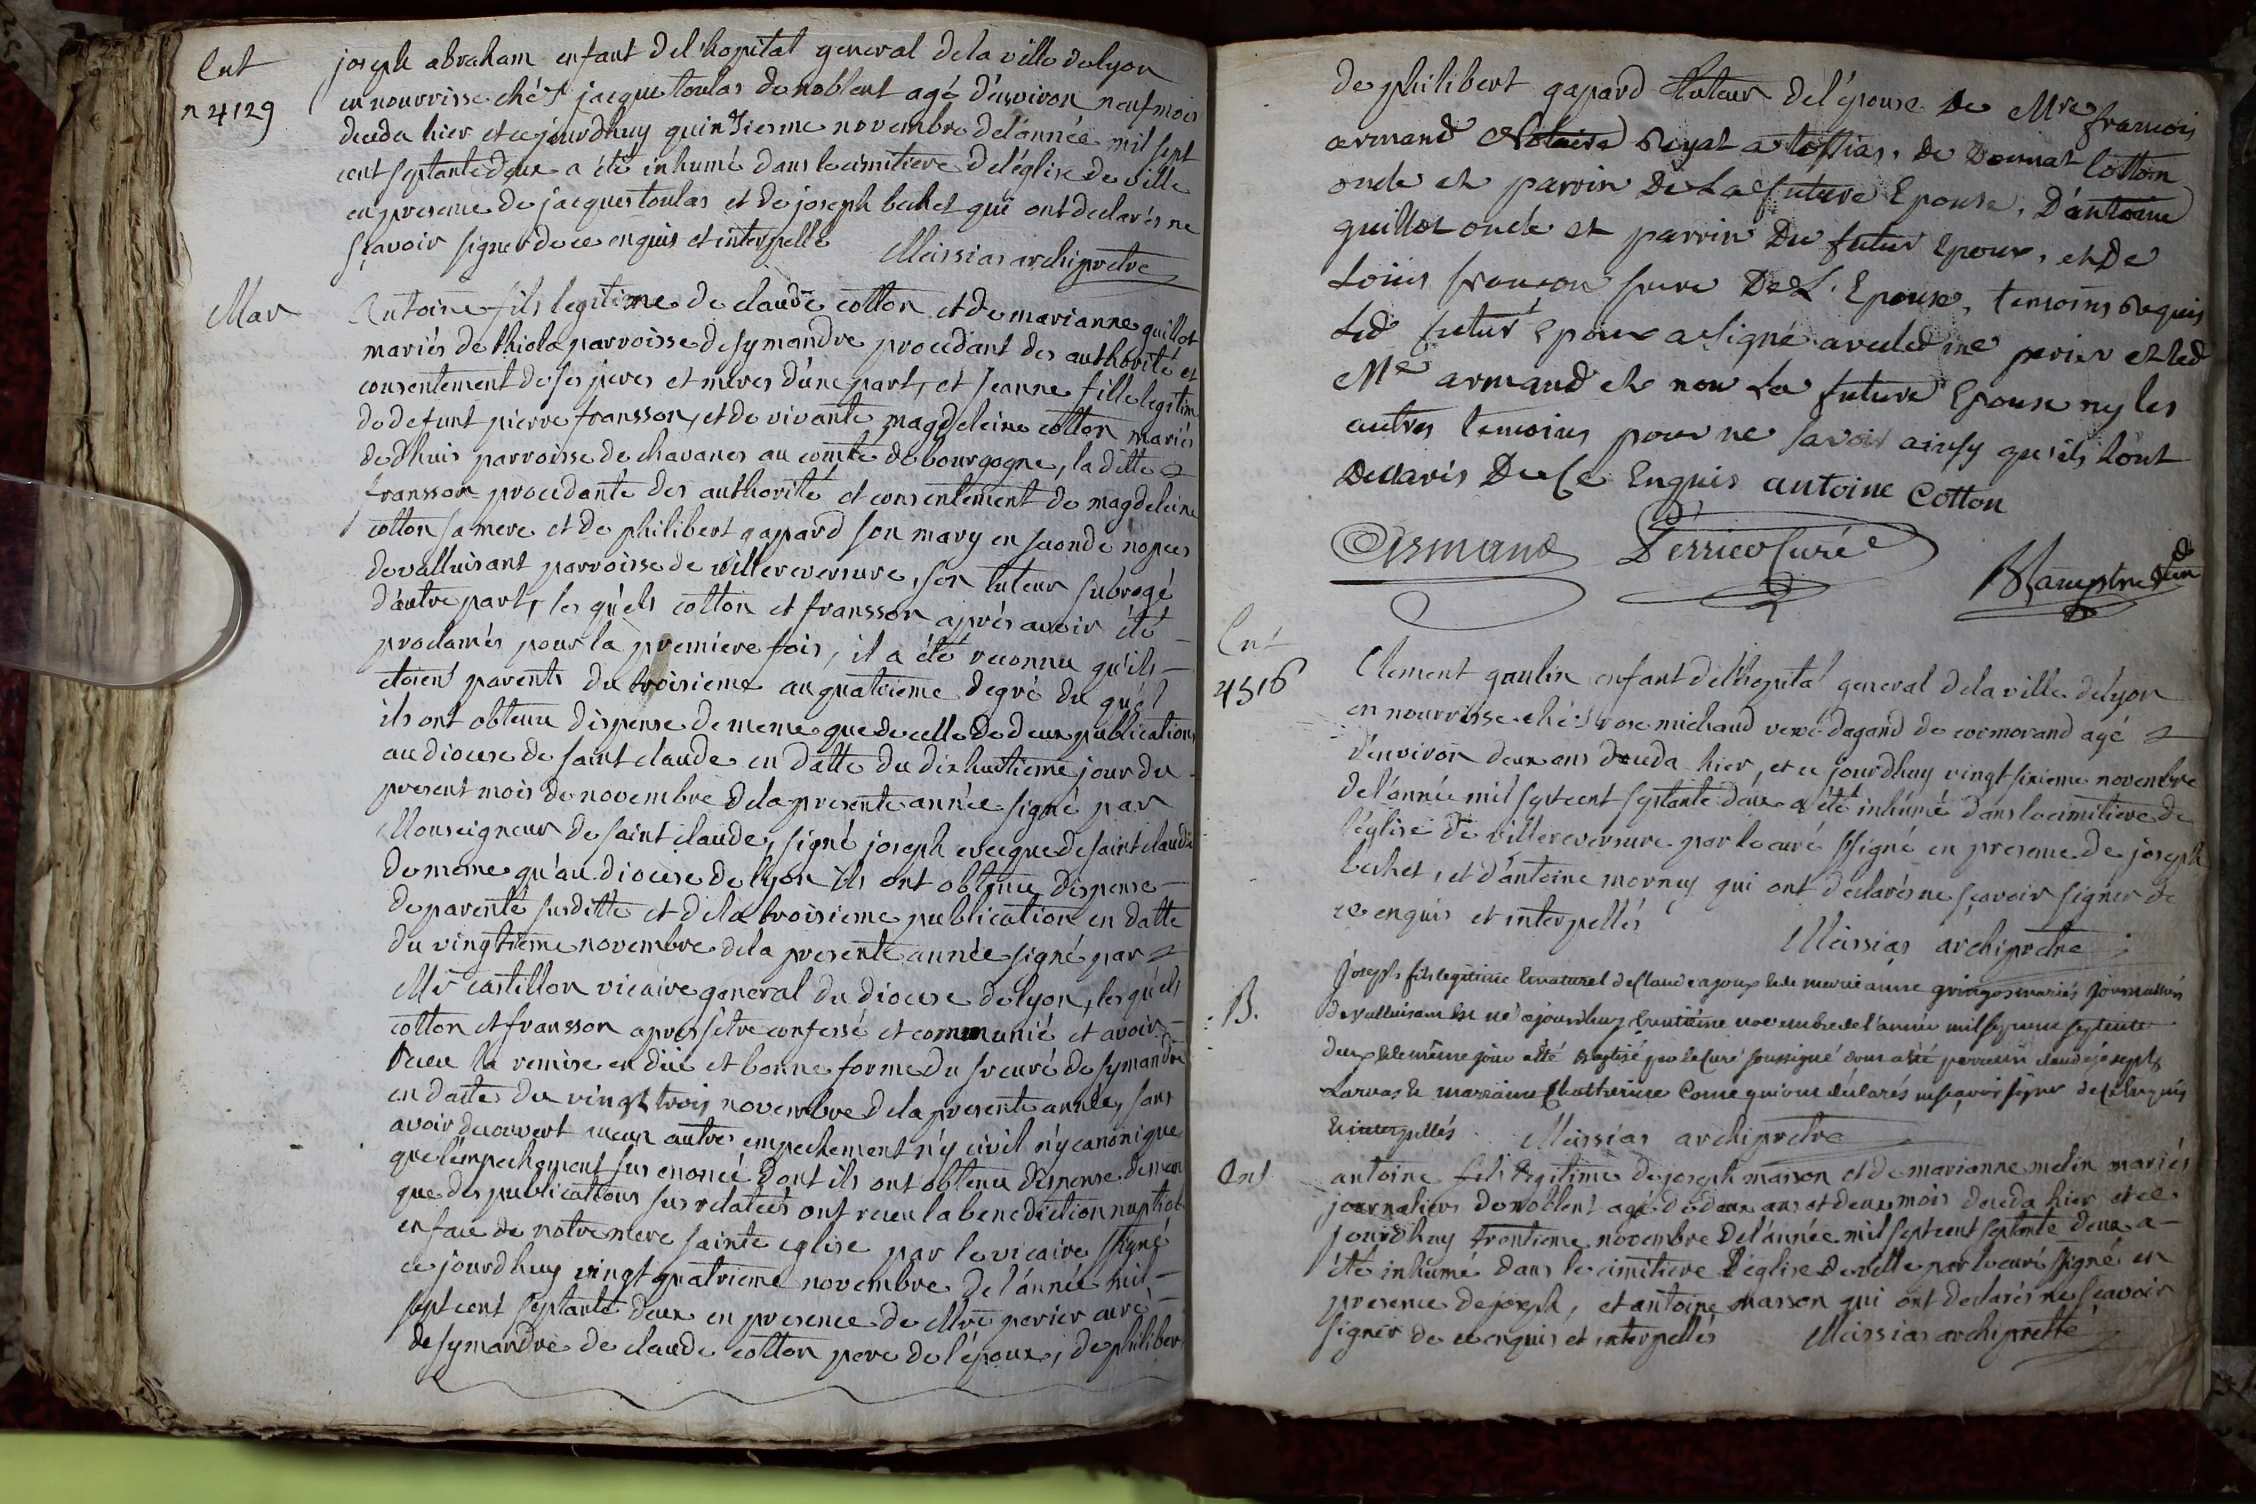 Ent
n 4129
joseph abraham enfant de l'hopital general de la ville de lyon
en nourrisse chés jacque toulas de noblent agé d'environ neuf mois
deceda hier et ce jourdhuy quinzieme novembre de l'année mil sept
cent septante deux a été inhumé dans le cimitiere de l'église de ville
en presence de jacques toulas et de joseph bechet qui ont declarés ne
sçavoir signer de ce enquis et interpellé Meissias archipretre
Mar
Antoine fils legitime de claude cotton et de marianne guillot
mariés de thiola parroisse de symandre procedant des authorité et
consentement de ses peres et meres d'une part, et jeanne fille legitim
de defunt pierre fransson, et de vivante magdeleine cotton mariés
de dhuis parroisse de chavanes au comté de bourgogne, la ditte
fransson procedante des authorité et consentement de magdeleine
cotton sa mere et de philibert gapard son mary en seconde nopces
de valluisant parroisse de villereversure, son tuteur subrogé
d'autre part, les quels cotton et fransson aprés avoir été
proclamés pour la premiere fois, il a été reconnu qu'ils
etoient parents du troisieme au quatrieme degré du quel
ils ont obtenu dispense de meme que de celle de deux publications
au diocese de saint claude en datte du dixhuitieme jour du
present mois de novembre de la presente année signé par
Monseigneur de saint claude, signé joseph evecque de saint claude
de meme qu'au diocese de lyon ils ont obtenu dispense
de parenté susditte et de la troisieme publication en datte
du vingtieme novembre de la presente année signé par
Mr castillon vicaire general du diocese de lyon, les quels
cotton et fransson apres s'etre confessé et communié et avoir
receu la remise en due et bonne forme du sr curé de symandre
en datte du vingt trois novembre de la presente année, sans
avoir decouvert aucun autre empechement n'y civil n'y canonique
que l'empechement sus enoncé dont ils ont obtenu dispense de mem
que des publications sus relatées ont receu la benediction nuptial
en face de notre mere sainte eglise par le vicaire ssigné
ce jourdhuy vingt quatrieme novembre de l'année mil
sept cent septante deux en presence de Mre perier curé
de symandre de claude cotton pere de l'époux, de philiber
de philibert gapard tuteur de l'épouse de Mre francois
armand Notaire Royal a tossias, de Donnat Cotton
oncle et parrin De La future Epouse, D'antoine
guillot oncle et parrin Du futur Epoux, et De
Loüis francon frere De L'Epouse, temoins Requis
Led futur Epoux a signé avec led me perier et led
Me armand et non La future Epouse ny les
autres temoins pour ne savoir ainsy qu'ils L'ont
Declarés De Ce Enquis antoine Cotton
Armand Perrier Curé
Ent
4516
Clement gaulin enfant de l'hopital general de la ville de lyon
en nourrisse chés rose michaud veve dagand de cormorand agé
d'environ deux ans deceda hier, et ce jourdhuy vingt sixieme novembre
de l'année mil sept cent septante deux a été inhumé dans le cimitiere de
l'église de villereversure par le curé ssigné en presence de joseph
bechet, et d'antoine mornay qui ont declarés ne sçavoir signer de
ce enquis et interpellés Meissias archiprêtre
B.
Joseph fils legitime Et naturel de Claude ajoux et de marie anne gringoz mariés journaliers
de valluisant Est né cejourdhuy trentième novembre de l'année mil sept cent septente
deux et le même jour a été Baptizé par le Curé soussigné dont a été parrain claude joseph
Larvas et marraine Chatherine Come qui ont déclarés ne sçavoir signer de Ce Enquis
Et interpellés Meissias archiprêtre
Ent
antoine fils legitime de joseph masson et de marianne melin mariés
journaliers de noblent agé de deux ans et deux mois deceda hier et ce
jourdhuy trentieme novembre de l'année mil sept cent septante deux a
été inhumé dans le cimitiere l'église de ville par le curé ssigné en
presence de joseph, et antoine masson qui ont declarés ne sçavoir
signer de ce enquis et interpellés Meissias archiprêtre